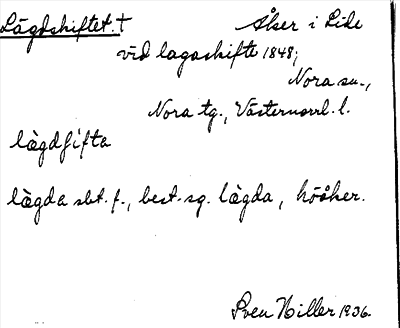 Lägdskiftet. † Åker i Lide
vid lagaskifte 1848;
Nora sn.,
Nora tg., Västernorrl. l.
lègdʃifta
lègda sbt. f., best. sg. lègda, höåker.
Sven Hiller 1936.